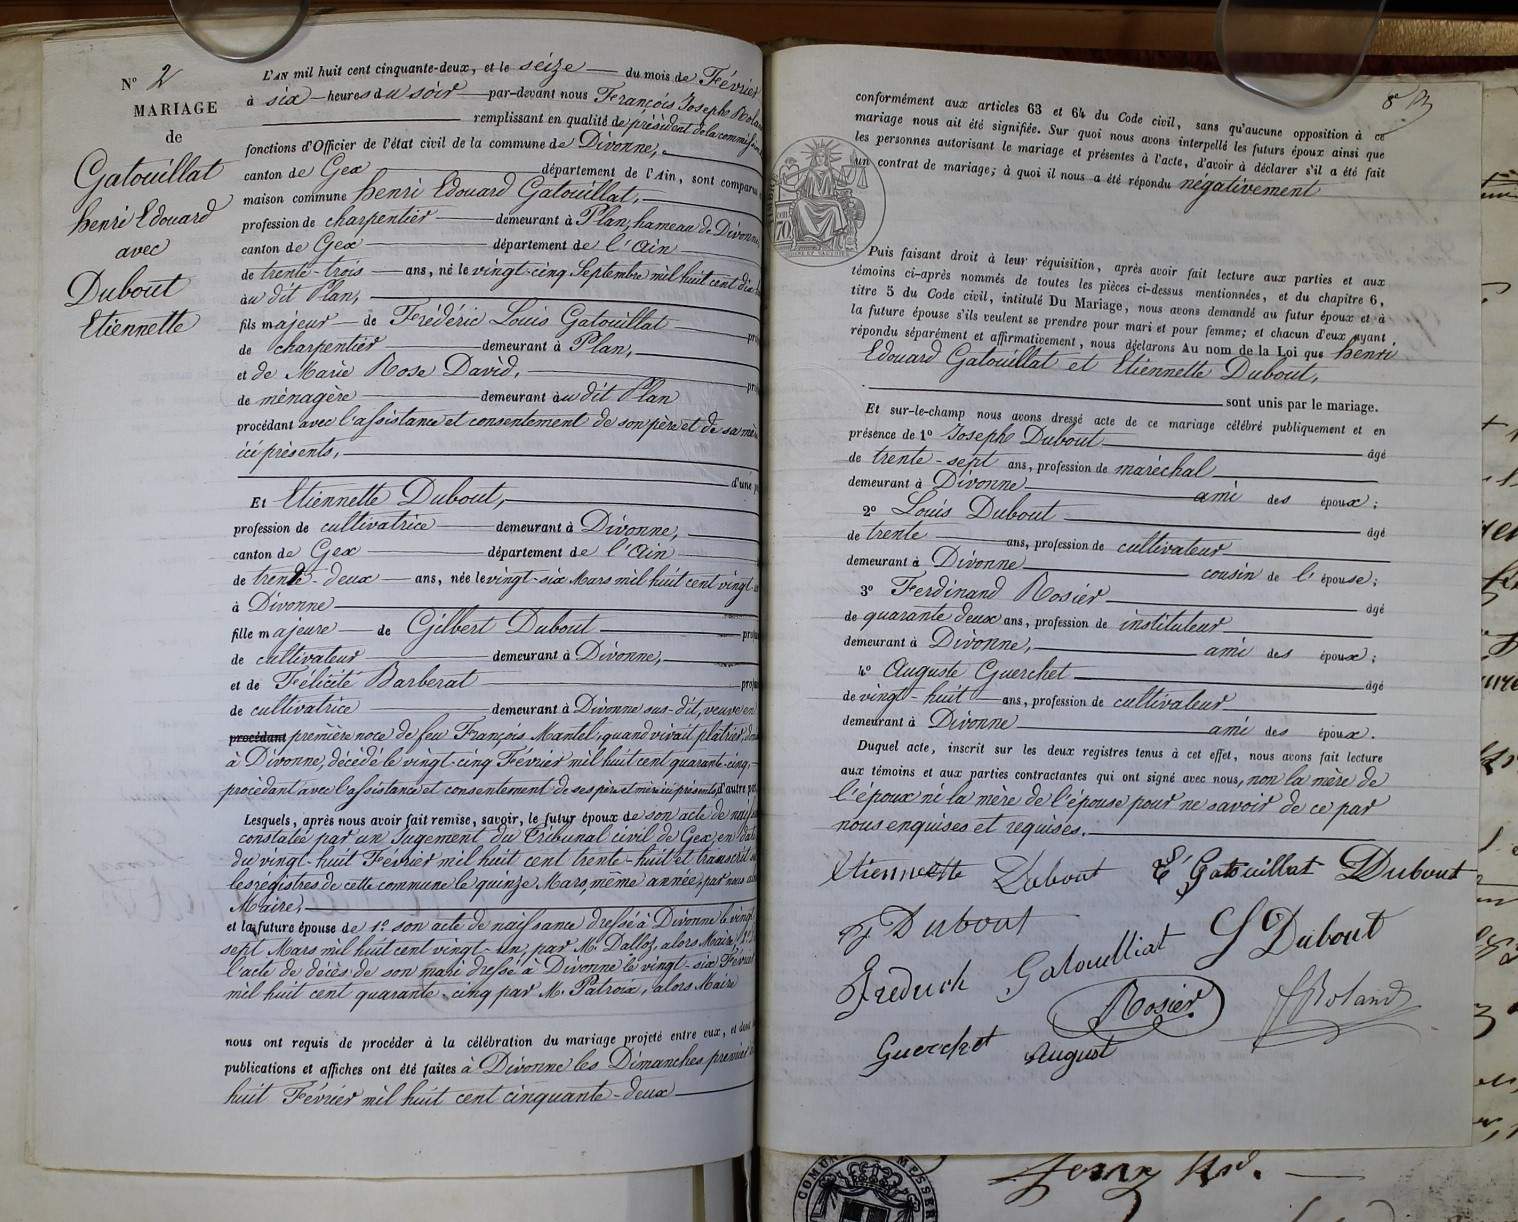 N° 2
MARIAGE
de
Gatouillat
henri Edouard
avec
Dubout
Etiennette
L'AN mil huit cent cinquante-deux, et le seize du mois de Février
à six heures du soir par-devant nous François Joseph Rolan
remplissant en qualité de président de la commission
fonctions d'Officier de l'état civil de la commune de Divonne,
canton de Gex département de l'Ain, sont comparus
maison commune henri Edouard Gatouillat,
profession de charpentier demeurant à Plan, hameau de Divonne,
canton de Gex département de l'Ain
de trente-trois ans, né le vingt-cinq Septembre mil huit cent dix-
au dit Plan,
fils majeur de Frédéric Louis Gatouillat pro
de charpentier demeurant à Plan,
et de Marie Rose David, pro
de ménagère demeurant au dit Plan
procédant avec l'assistance et consentement de son père et de sa mère
ici présents,
d'une p
Et Etiennette Dubout,
profession de cultivatrice demeurant à Divonne,
canton de Gex département de l'Ain
de trente-deux ans, née le vingt-six Mars mil huit cent vingt-
à Divonne
fille majeure de Gilbert Dubout pro
de cultivateur demeurant à Divonne,
et de Félicité Barberat pro
de cultivatrice demeurant à Divonne sus-dit, veuve en
procédant première noce de feu François Mantel, quand vivait plâtrier,
à Divonne, décédé le vingt-cinq Février mil huit cent quarante-cinq,
procédant avec l'assistance et consentement de ses père et mère ici présents, d'autre par
Lesquels, après nous avoir fait remise, savoir, le futur époux de son acte de
constatée par un Jugement du Tribunal civil de Gex, en date
du vingt-huit Février mil huit cent trente-huit et transcrit
les régistres de cette commune le quinze Mars, même année, par nous
Maire,
et la future épouse de 1° son acte de naissance dressé à Divonne le vingt
sept Mars mil huit cent vingt-un, par M. Dalloz, alors Maire,
l'acte de décès de son mari dressé à Divonne le vingt-six Février
mil huit cent quarante-cinq par M. Patroix, alors Maire
nous ont requis de procéder à la célébration du mariage projeté entre eux, et dont
publications et affiches ont été faites à Divonne les Dimanches premier
huit Février mil huit cent cinquante-deux
conformément aux articles 63 et 64 du Code civil, sans qu'aucune opposition à ce
mariage nous ait été signifiée. Sur quoi nous avons interpellé les futurs époux ainsi que
les personnes autorisant le mariage et présentes à l'acte, d'avoir à déclarer s'il a été fait
un contrat de mariage; à quoi il nous a été répondu négativement
Puis faisant droit à leur réquisition, après avoir fait lecture aux parties et aux
témoins ci-après nommés de toutes les pièces ci-dessus mentionnées, et du chapitre 6,
titre 5 du Code civil, intitulé Du Mariage, nous avons demandé au futur époux et à
la future épouse s'ils veulent se prendre pour mari et pour femme; et chacun d'eux ayant
répondu séparément et affirmativement, nous déclarons Au nom de la Loi que henri
Edouard Gatouillat et Etiennette Dubout,
sont unis par le mariage.
Et sur-le-champ nous avons dressé acte de ce mariage célébré publiquement et en
présence de 1° Joseph Dubout âgé
de trente-sept ans, profession de maréchal
demeurant à Divonne ami des époux;
2° Louis Dubout âgé
de trente ans, profession de cultivateur
demeurant à Divonne cousin de l'épouse;
3° Ferdinand Rosier âgé
de quarante deux ans, profession de instituteur
demeurant à Divonne, ami des époux;
4° Auguste Guerchet âgé
de vingt-huit ans, profession de cultivateur
demeurant à Divonne ami des époux.
Duquel acte, inscrit sur les deux registres tenus à cet effet, nous avons fait lecture
aux témoins et aux parties contractantes qui ont signé avec nous, non la mère de
l'époux ni la mère de l'épouse pour ne savoir de ce par
nous enquises et requises.
Etiennette Dubout Gatouillat Dubout
Dubout
Frederick Gatouilliat Dubout
Rosier Roland
Guerchet August